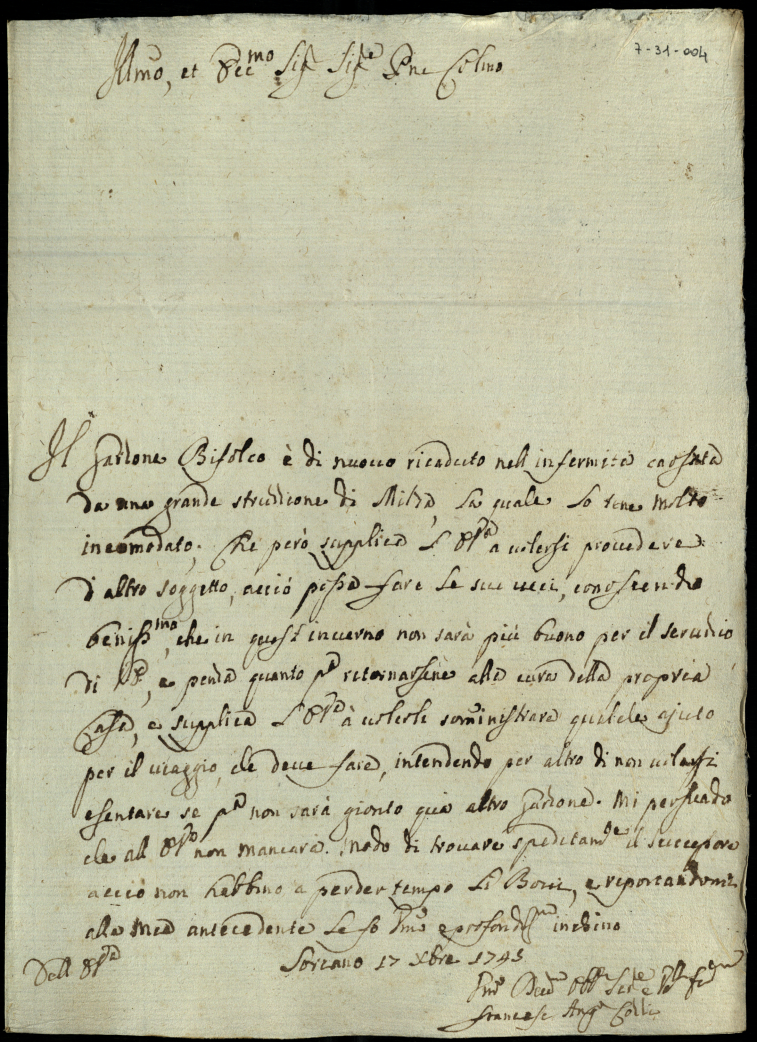 7-31-004
Illmo, et Ecc.mo Sig.r Sig.re Pne Colmo
Il Garzone Bifolco è di nuovo ricaduto nell infermità caosata
da una grande struzione di Milza, la quale lo tene molto
incomodato, che però supplica a volersi provedere
d altro soggetto, acciò possa fare le sue veci, conoscendo
beniss.mo, che in quest inverno non sarà più buono per il servizio
di e penza quanto p.a ritornarsene alla cura della propria
Casa, e supplica à volerli somministrare qualche ajuto
per il viaggio, che deve fare, intendendo per altro di non volersi
esentare se p.a non sarà gionto quà altro Garzone. Mi persuado
che all non mancarà modo di trovare speditam.e il successore
acciò non habbino a perder tempo li Bovi, e riportandomi
alla mia antecedente le fò profond inchino
Dell
Soriano 17 Xbre 1745
Franceso Ang.o